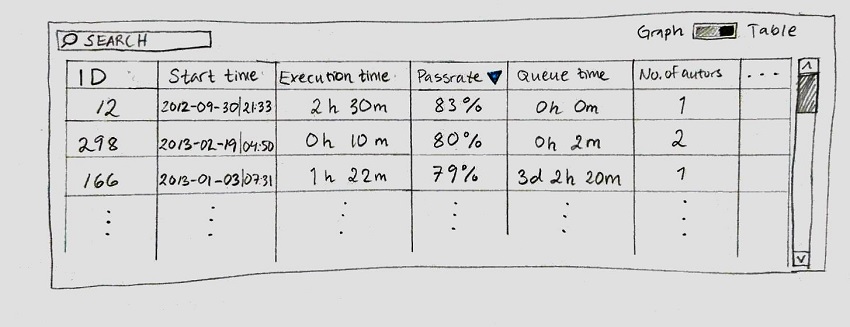 SEARCH
Graph Table
ID Start time Execution time Passrate Queue time No. of autors ...
12 2012-09-30|21:33 2h 30m 83% 0h 0m 1
298 2013-02-19|04:50 0h 10m 80% 0h 2m 2
166 2013-01-03|07:31 1h 22m 79% 3d 2h 20m 1